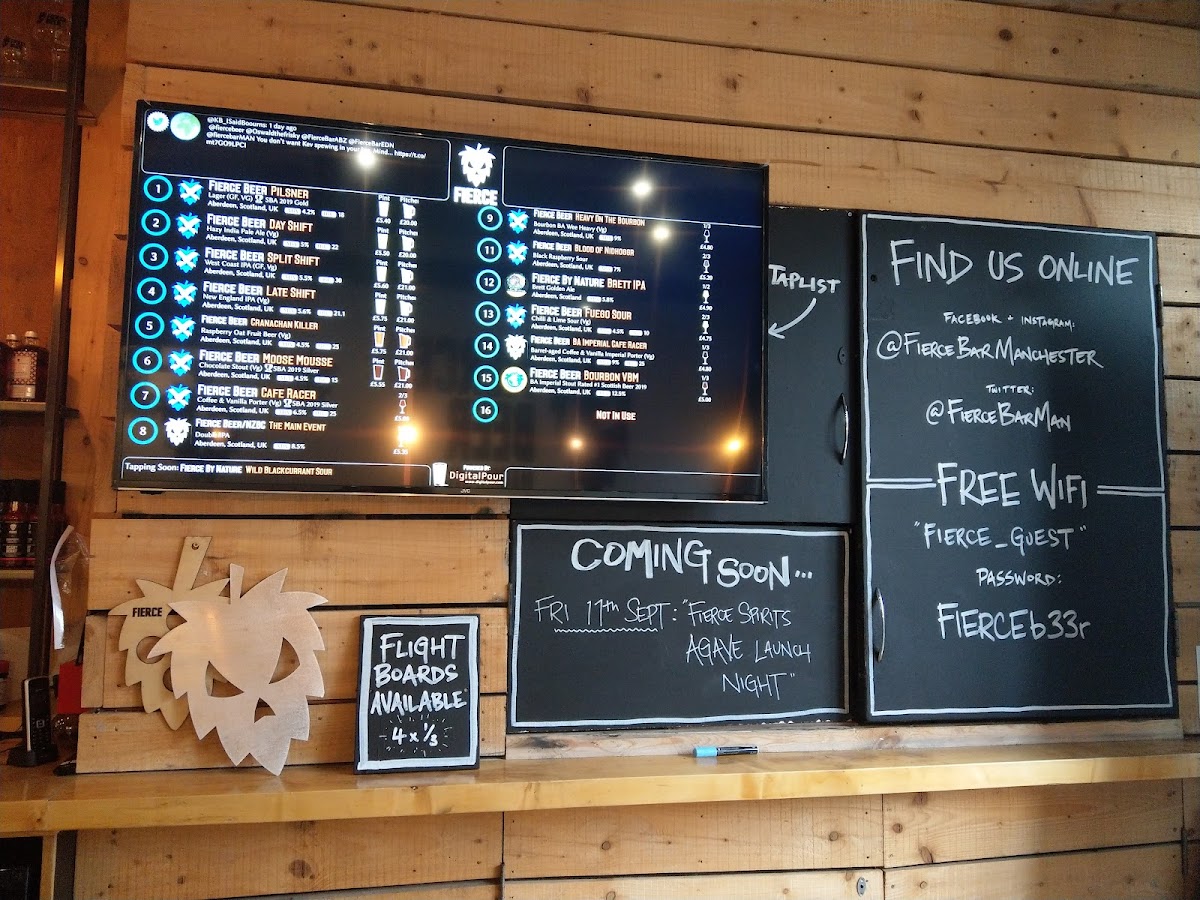 @KB_ISaidBoourns: 1 day ago
@fiercebeer @Oswaldthefrisky @FierceBarABZ @FierceBarEDN
@fiercebarMAN You don't want Kev spewing in your Mind... https://t.co/
mt7GO9LPCI
FIERCE
Pint Pitcher
1 FIERCE BEER PILSNER
Lager (GF, VG) SBA 2019 Gold
Aberdeen, Scotland, UK 4.2% 18
£5.40 £20.00
2 FIERCE BEER DAY SHIFT
Hazy India Pale Ale (Vg)
Aberdeen, Scotland, UK 5% 22
£5.50 £20.00
3 FIERCE BEER SPLIT SHIFT
West Coast IPA (GF, Vg)
Aberdeen, Scotland, UK 5.5% 30
£5.60 £21.00
4 FIERCE BEER LATE SHIFT
New England IPA (Vg)
Aberdeen, Scotland, UK 5.6% 21.1
£5.75 £21.00
5 FIERCE BEER CRANACHAN KILLER
Raspberry Oat Fruit Beer (Vg)
Aberdeen, Scotland, UK 4.5% 25
£5.75 £21.00
6 FIERCE BEER MOOSE MOUSSE
Chocolate Stout (Vg) SBA 2019 Silver
Aberdeen, Scotland, UK 4.5% 15
£5.55 £21.00
7 FIERCE BEER CAFE RACER
Coffee & Vanilla Porter (Vg) SBA 2019 Silver
Aberdeen, Scotland, UK 6.5% 25
2/3
8 FIERCE BEER/NZBC THE MAIN EVENT
Double IPA
Aberdeen, Scotland, UK 8.5%
9 FIERCE BEER HEAVY ON THE BOURBON
Bourbon BA Wee Heavy (Vg)
Aberdeen, Scotland, UK 9%
1/3
£4.80
11 FIERCE BEER BLOOD OF NIDHOGGR
Black Raspberry Sour
Aberdeen, Scotland, UK 7%
2/3
£5.20
12 FIERCE BY NATURE BRETT IPA
Brett Golden Ale
Aberdeen, Scotland 5.8%
1/2
£4.90
13 FIERCE BEER FUEGO SOUR
Chilli & Lime Sour (Vg)
Aberdeen, Scotland, UK 4.5% 10
2/3
£4.75
14 FIERCE BEER BA IMPERIAL CAFE RACER
Barrel-aged Coffee & Vanilla Imperial Porter (Vg)
Aberdeen, Scotland, UK 9% 25
1/3
£4.80
15 FIERCE BEER BOURBON VBM
BA Imperial Stout Rated #1 Scottish Beer 2019
Aberdeen, Scotland, UK 12.5%
1/3
£5.00
16 NOT IN USE
Tapping Soon: FIERCE BY NATURE WILD BLACKCURRANT SOUR
POWERED BY:
DigitalPour
www.digitalpour.com
JVC
TAPLIST
FIND US ONLINE
FACEBOOK + INSTAGRAM:
@FIERCEBARMANCHESTER
TWITTER:
@FIERCEBARMAN
FREE WIFI
"FIERCE_GUEST"
PASSWORD:
FIERCEb33r
COMING SOON...
FRI 11th SEPT: "FIERCE SPIRITS
AGAVE LAUNCH
NIGHT"
FIERCE
FLIGHT
BOARDS
AVAILABLE
4 x 1/3